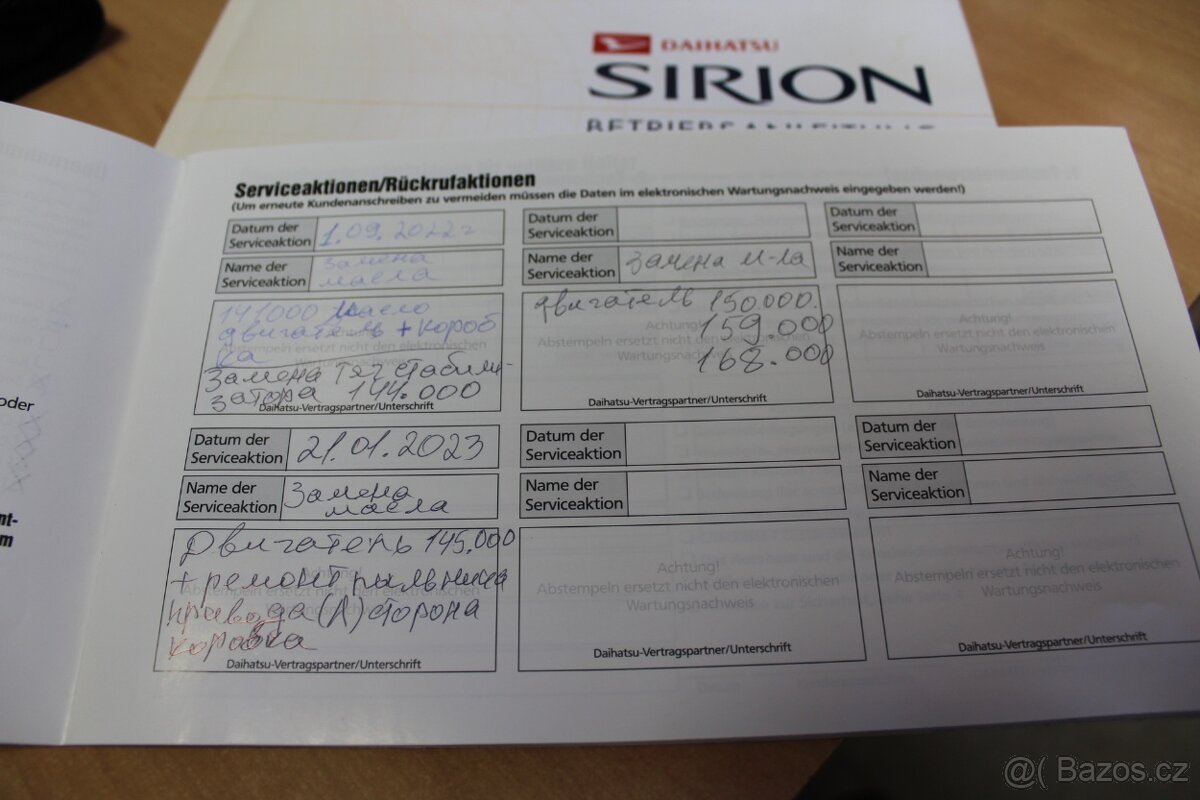 DAIHATSU
SIRION
BETRIEBSANLEITUNG
Serviceaktionen/Rückrufaktionen
(Um erneute Kundenanschreiben zu vermeiden müssen die Daten im elektronischen Wartungsnachweis eingegeben werden!)
Datum der
Serviceaktion
1.09.2022г
Name der
Serviceaktion
Замена
масла
141000 Масло
двигатель + короб
ка
Замена тяг стабили-
затора 144.000
Daihatsu-Vertragspartner/Unterschrift
Datum der
Serviceaktion
Name der
Serviceaktion
Замена м-ла
двигатель 150.000.
159.000
168.000
Achtung!
Abstempeln ersetzt nicht den elektronischen
Wartungsnachweis
Daihatsu-Vertragspartner/Unterschrift
Datum der
Serviceaktion
Name der
Serviceaktion
Achtung!
Abstempeln ersetzt nicht den elektronischen
Wartungsnachweis
Daihatsu-Vertragspartner/Unterschrift
Datum der
Serviceaktion
21.01.2023
Name der
Serviceaktion
Замена
масла
Двигатель 145.000
+ ремонт пыльника
привода (Л) сторона
коробка
Daihatsu-Vertragspartner/Unterschrift
Datum der
Serviceaktion
Name der
Serviceaktion
Achtung!
Abstempeln ersetzt nicht den elektronischen
Wartungsnachweis
Daihatsu-Vertragspartner/Unterschrift
Datum der
Serviceaktion
Name der
Serviceaktion
Achtung!
Abstempeln ersetzt nicht den elektronischen
Wartungsnachweis
Daihatsu-Vertragspartner/Unterschrift
oder
nt-
m
@( Bazos.cz